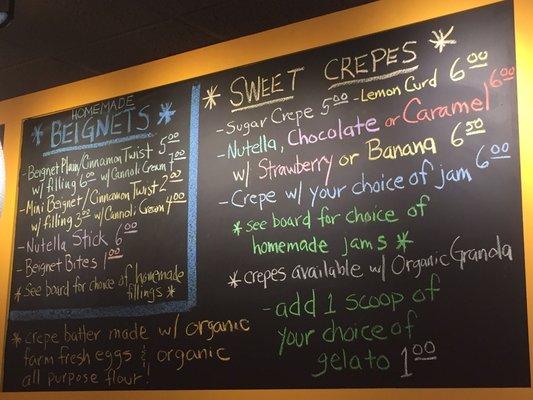 HOMEMADE
* BEIGNETS *
- Beignet Plain/Cinnamon Twist 5.00
w/ filling 6.00 w/ Cannoli Cream 7.00
- Mini Beignet/Cinnamon Twist 2.00
w/ filling 3.00 w/ Cannoli Cream 4.00
- Nutella Stick 6.00
- Beignet Bites 1.00
* see board for choice of homemade
fillings *
* crepe batter made w/ organic
farm fresh eggs & organic
all purpose flour!
* SWEET CREPES *
- Sugar Crepe 5.00 - Lemon Curd 6.00
- Nutella, Chocolate or Caramel 6.00
w/ Strawberry or Banana 6.50
- Crepe w/ your choice of jam 6.00
* see board for choice of
homemade jams *
* crepes available w/ Organic Granola
- add 1 scoop of
your choice of
gelato 1.00